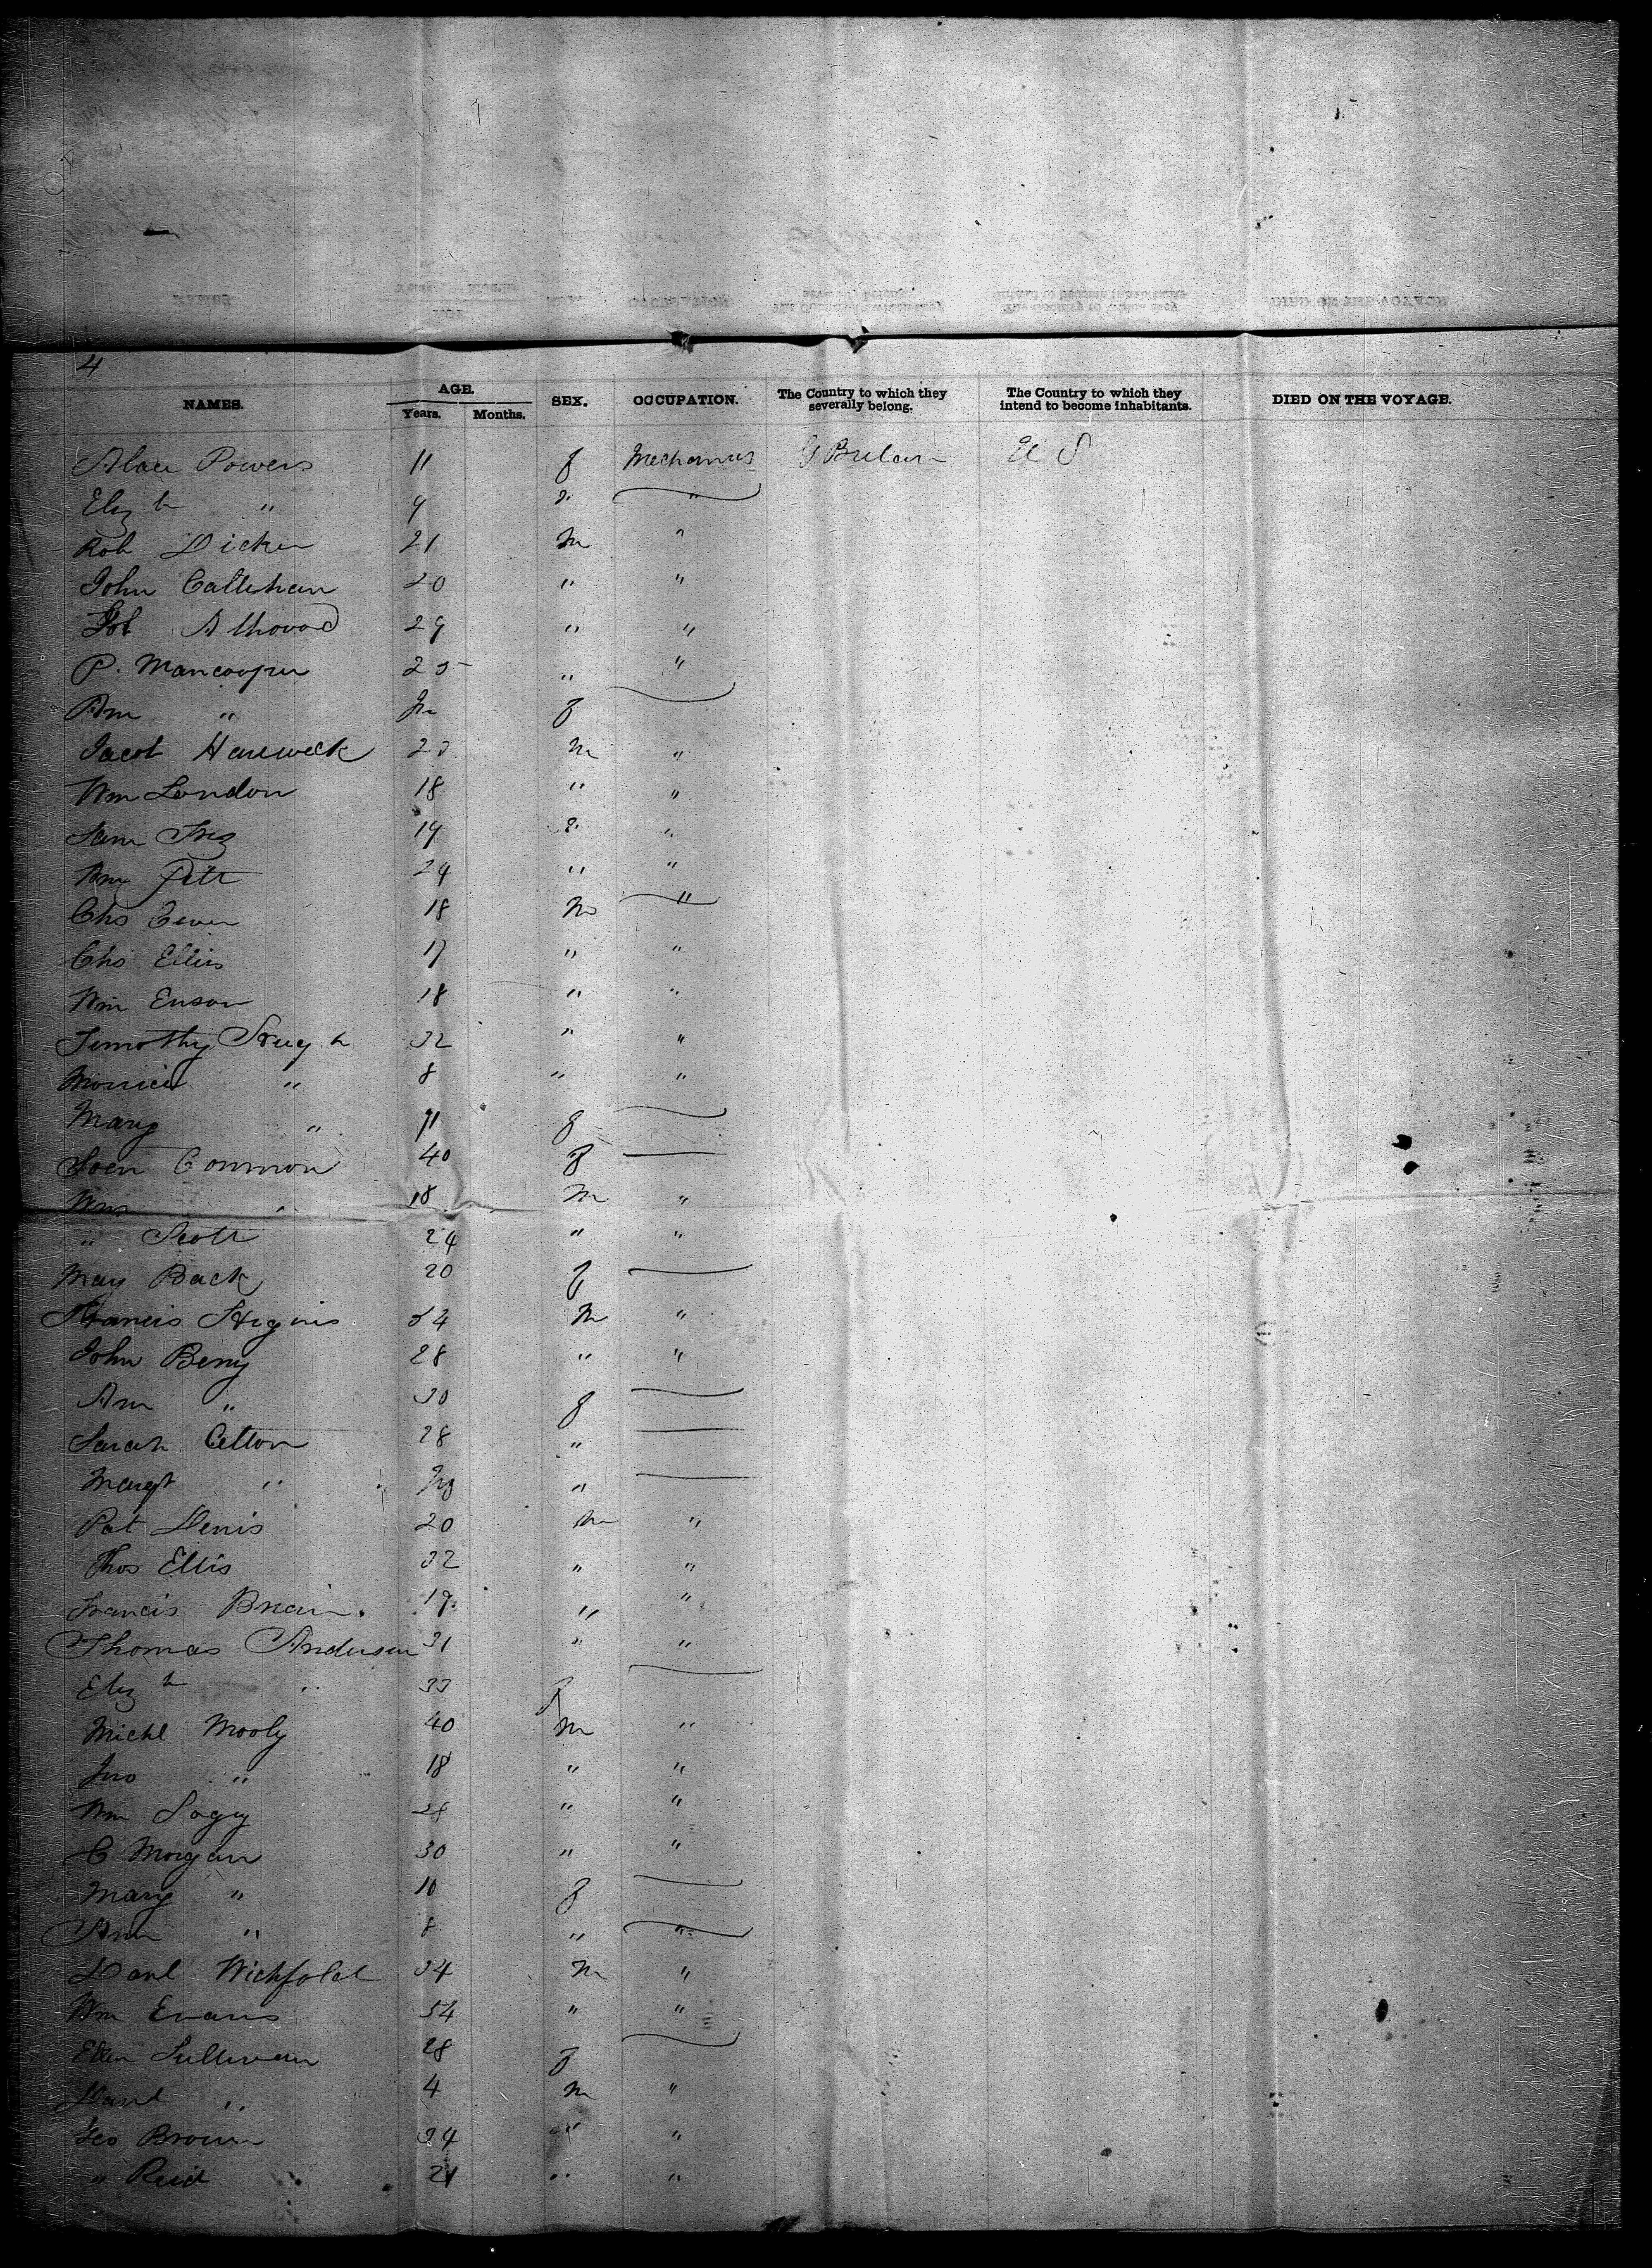 4
NAMES. AGE. Years. Months. SEX. OCCUPATION. The Country to which they severally belong. The Country to which they intend to become inhabitants. DIED ON THE VOYAGE.
Powers 11 f Mechanics G U S
Eliz h " 9 " "
Rob Dicken 21 m "
John Callehan 20 " "
29 " "
P. Mancooper 25 " "
Ann " f
Jacob m "
Wm London 18 " "
Sam 19 "
Wm Pitt 24 " "
Chs 18 m "
Chs Ellis 17 " "
Wm Enson 18 " "
Timothy 32 " "
" 8 " "
Mary " 11 f
Common 40 f
Wm " 18 m "
" Scott 24 " "
May Back 20 f
Francis Hignis 34 m "
John Berry 28 " "
Ann " 30 f
Sarah Celton 28 "
Margt " "
Pat Denis 20 m "
Thos Ellis 32 " "
Francis 19 " "
Thomas Anderson 31 " "
Eliz h " 33 f
Michl Mooly 40 m "
Jno " 18 " "
Wm 28 " "
C Morgan 30 " "
Mary " 10 f
Ann " 8 " "
Danl 34 m "
Wm Evans 54 " "
Ellen Sullivan 28 f
Danl " 4 m "
Geo Brown 34 " "
" Reid 21 " "